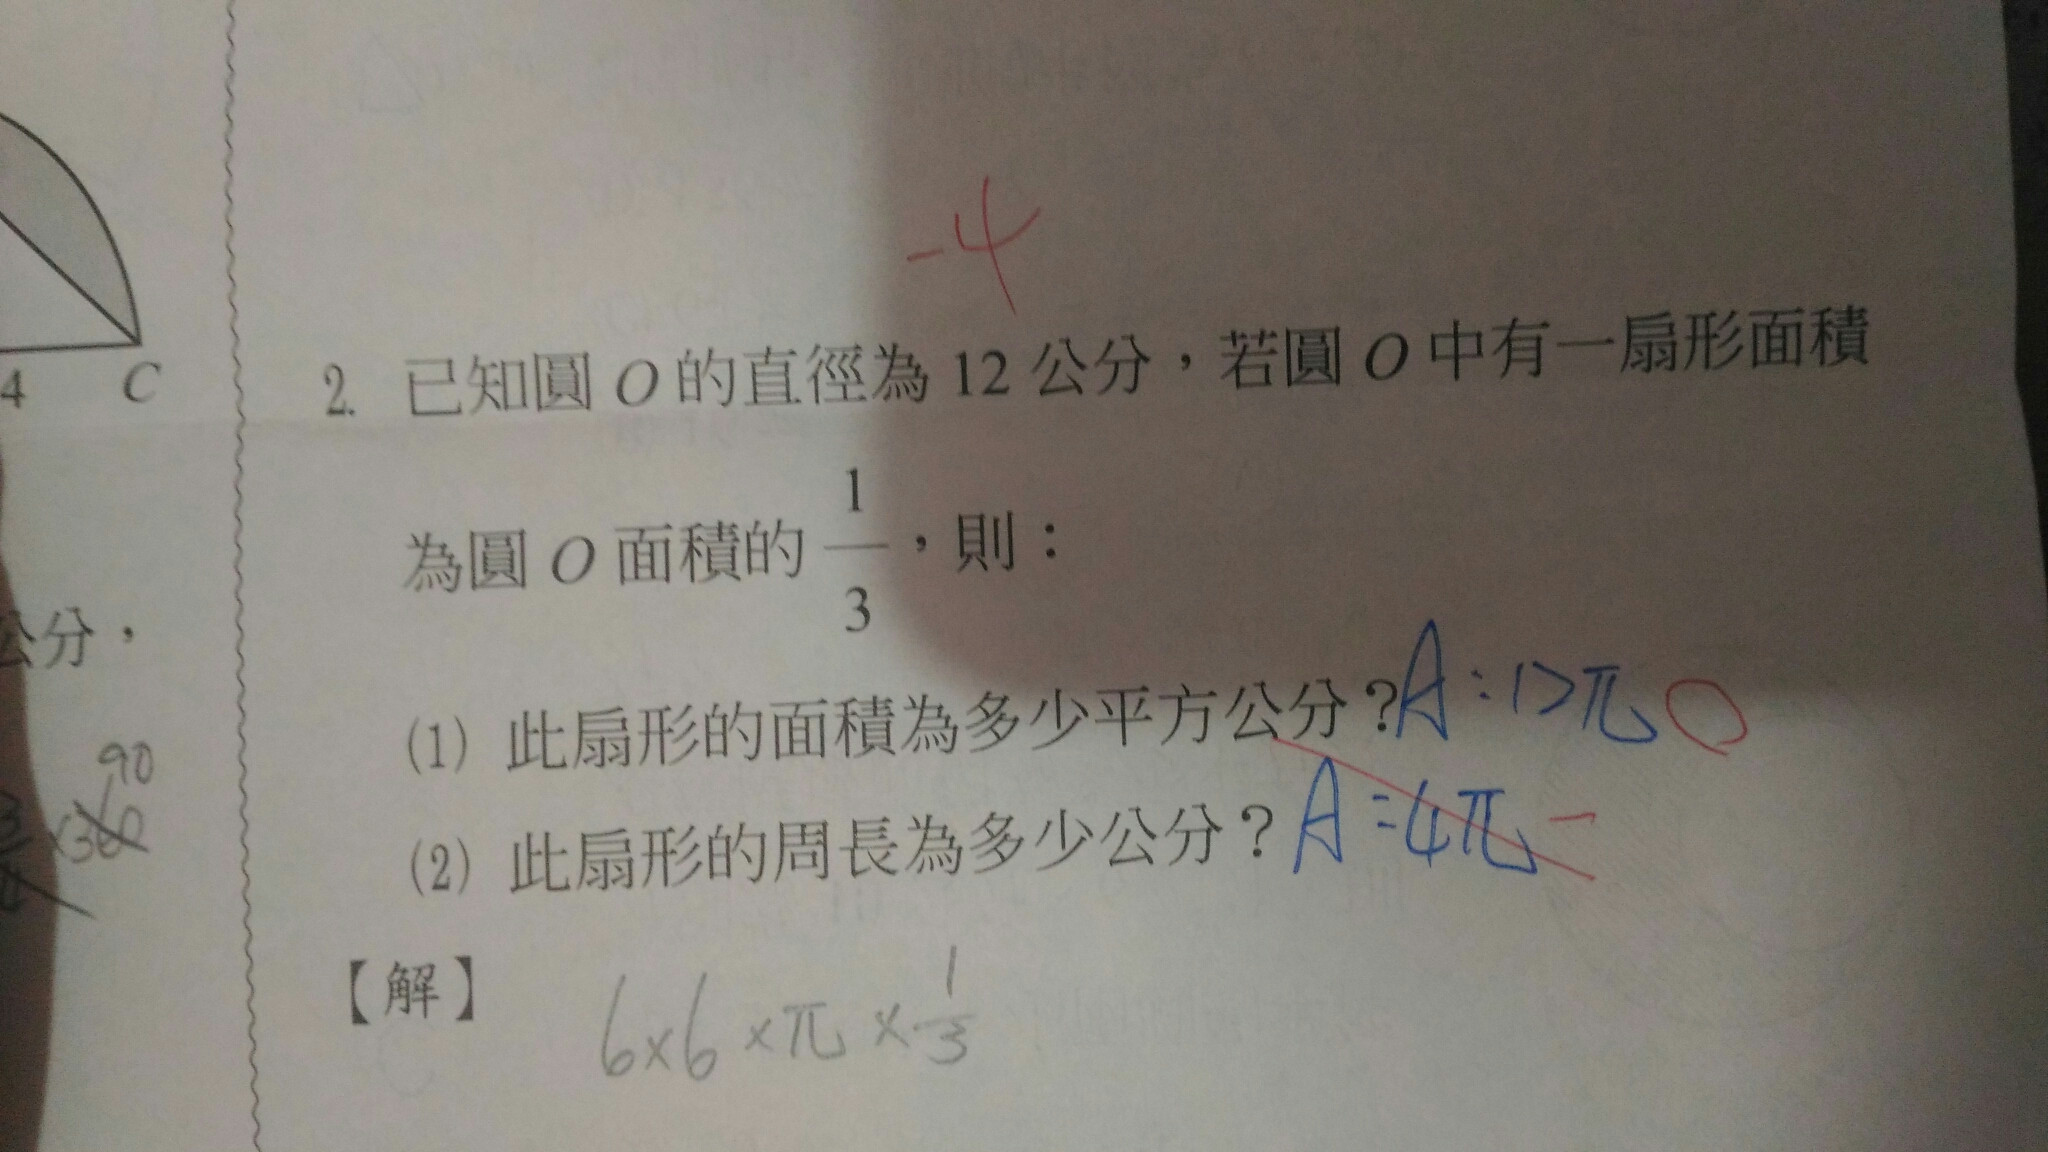 -4
4 C
2. 已知圓 O 的直徑為 12 公分，若圓 O 中有一扇形面積
為圓 O 面積的 1/3，則：
公分，
(1) 此扇形的面積為多少平方公分？A：12π
90
×360
(2) 此扇形的周長為多少公分？A：4π
【解】 6×6×π×1/3